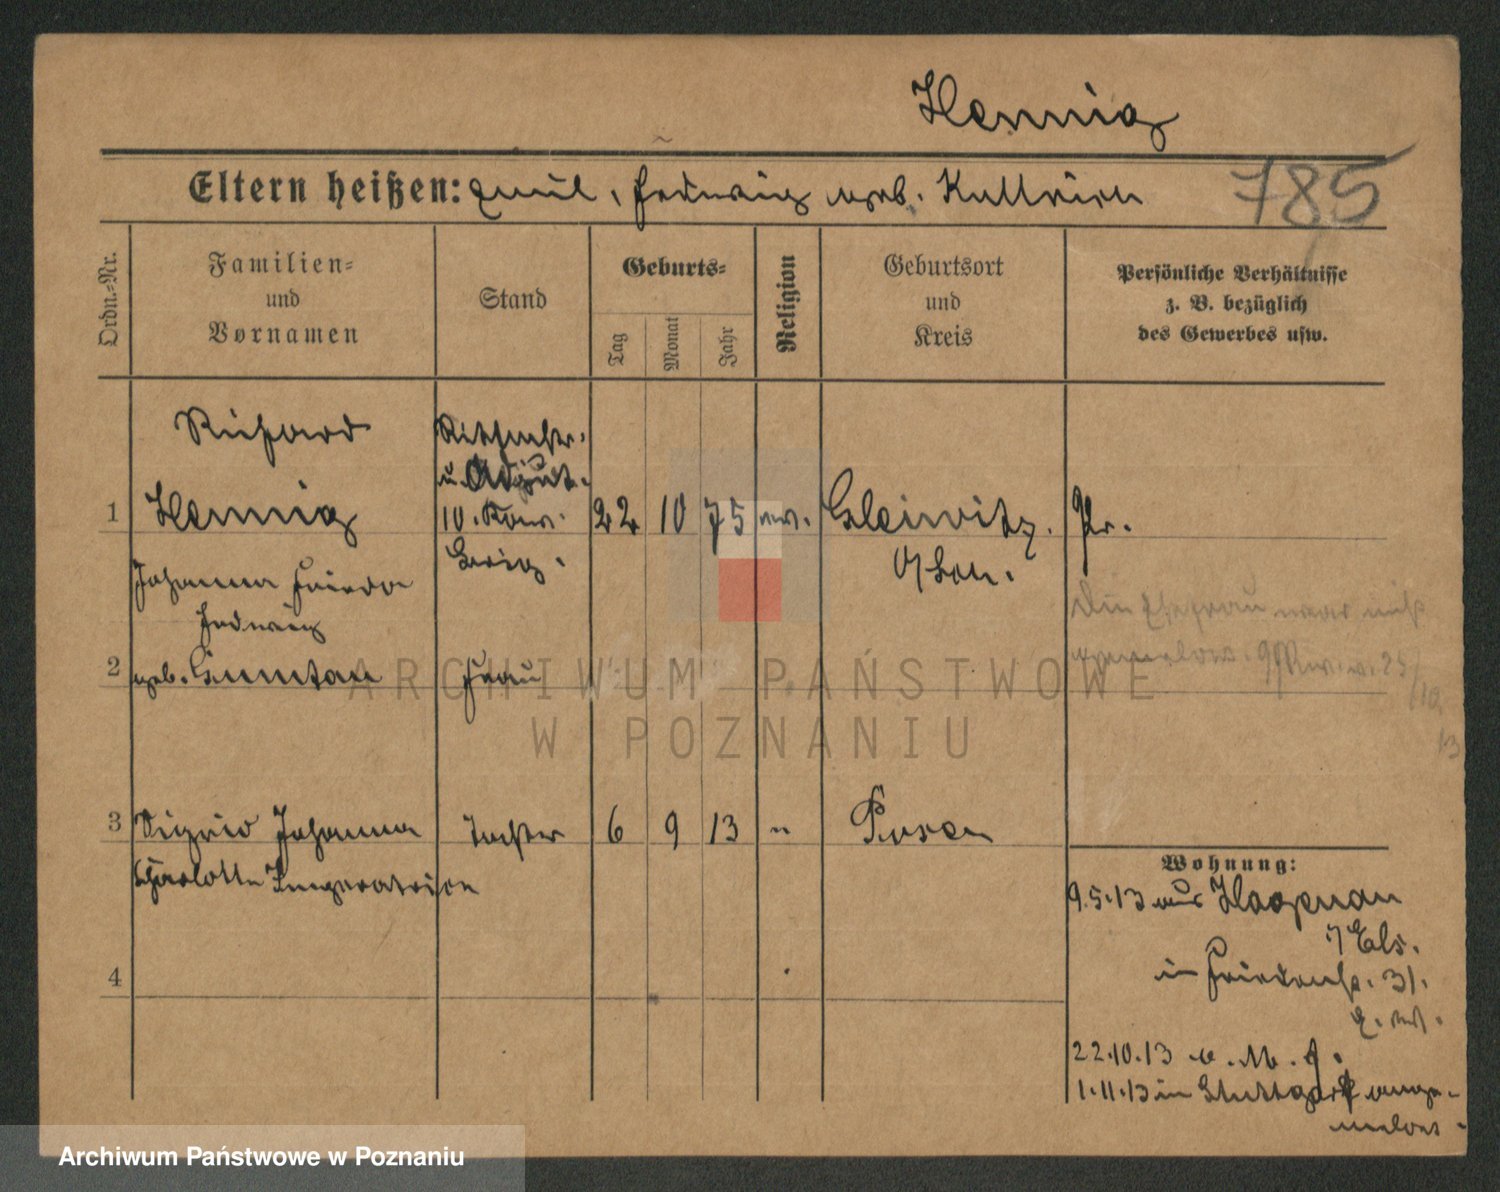 Hennig
Eltern heißen: Emil, Hedwig geb. Kullrich
785
Ordn.-Nr.
Familien-
und
Vornamen
Stand
Geburts-
Tag
Monat
Jahr
Religion
Geburtsort
und
Kreis
Persönliche Verhältnisse
z. B. bezüglich
des Gewerbes usw.
Richard
Rittmstr.
u. Adjut.
1 Hennig 10. Kav. 22 10 75 ev. Gleiwitz. Pr.
Brig.
O/Schl.
Johanna Frieda
Hedwig
Die Ehefrau war nicht
2 geb. Frau
25/10
13
3 Sigrid Johanna Tochter 6 9 13 " Posen
Charlotte Imperatrice
4
Wohnung:
9.5.13 aus Hagenau
i/Els.
in Friedenstr. 31.
22.10.13
1.11.13 in Stuttgart ange-
meldet
ARCHIWUM PAŃSTWOWE
W POZNANIU
Archiwum Państwowe w Poznaniu